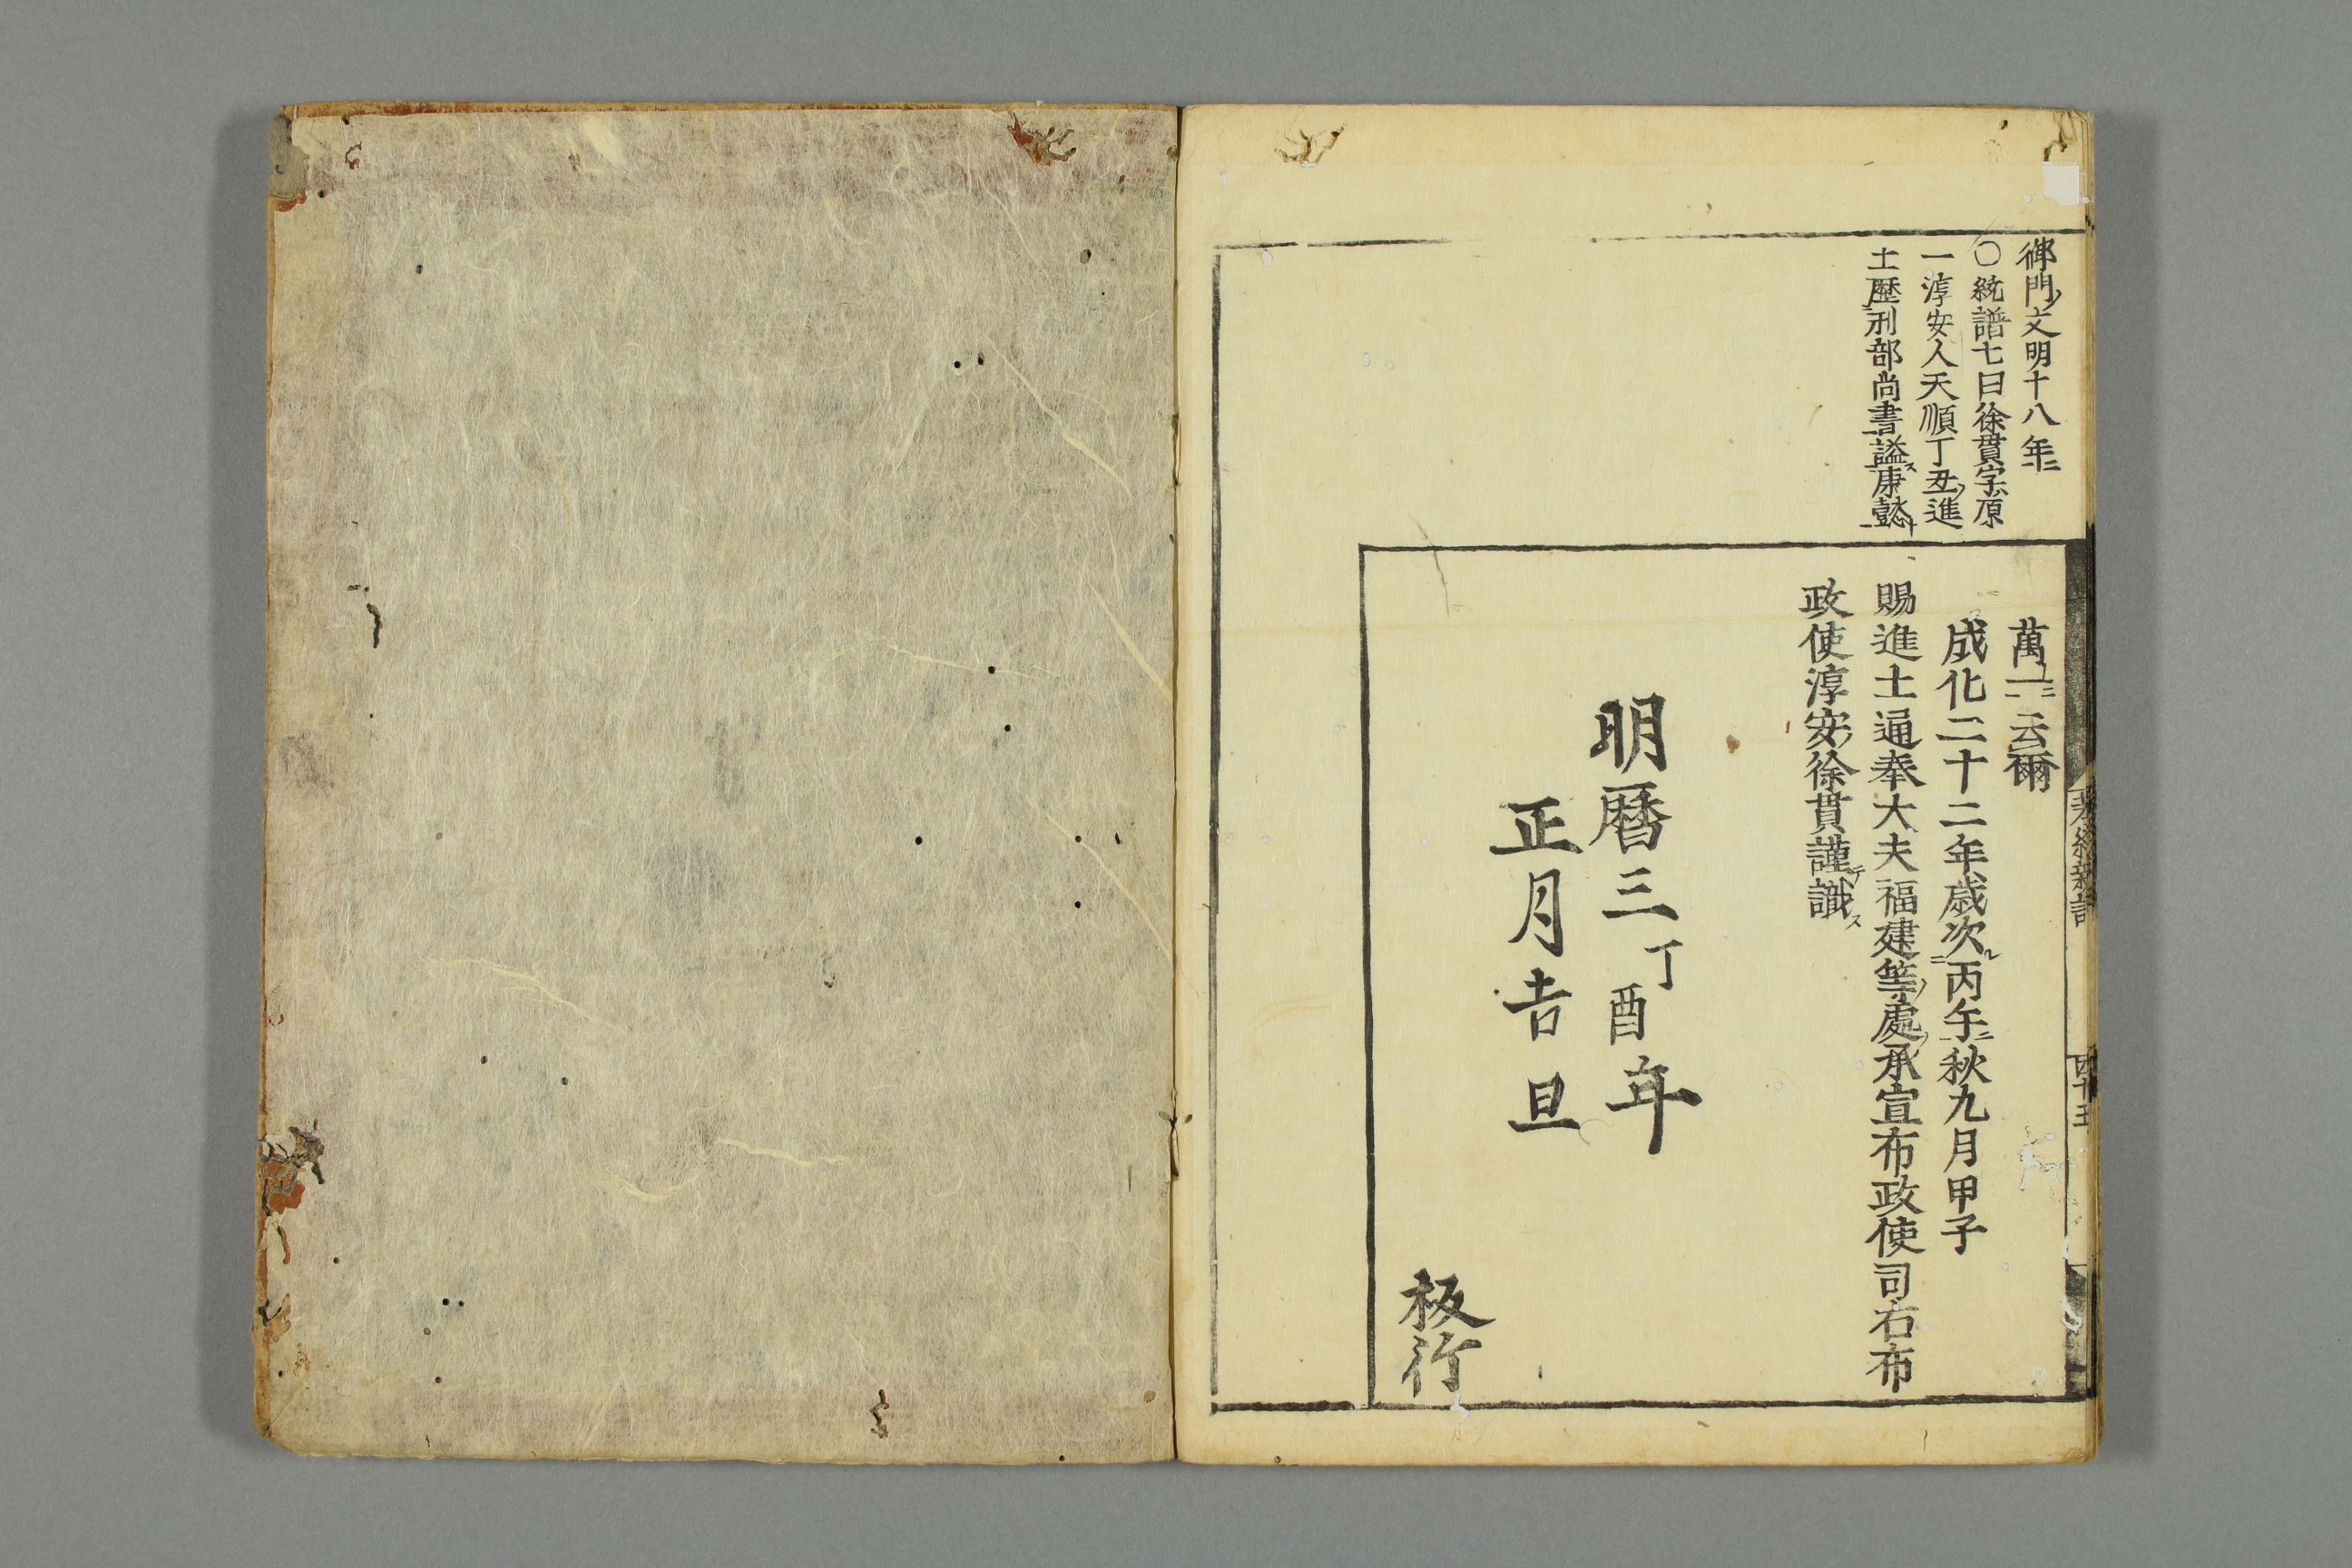 御門ノ文明十八年ニ
〇統譜七曰徐貫字ハ原
一淳安人天順丁丑ノ進
士歴刑部尚書謚ス康懿ト
萬一云爾
成化二十二年歳次ル丙午ニ秋九月甲子
賜進士通奉大夫福建等ノ處ノ承宣布政使司右布
政使淳安ノ徐貫謹テ識ス
明曆三丁酉年
正月吉旦
板行
四十五